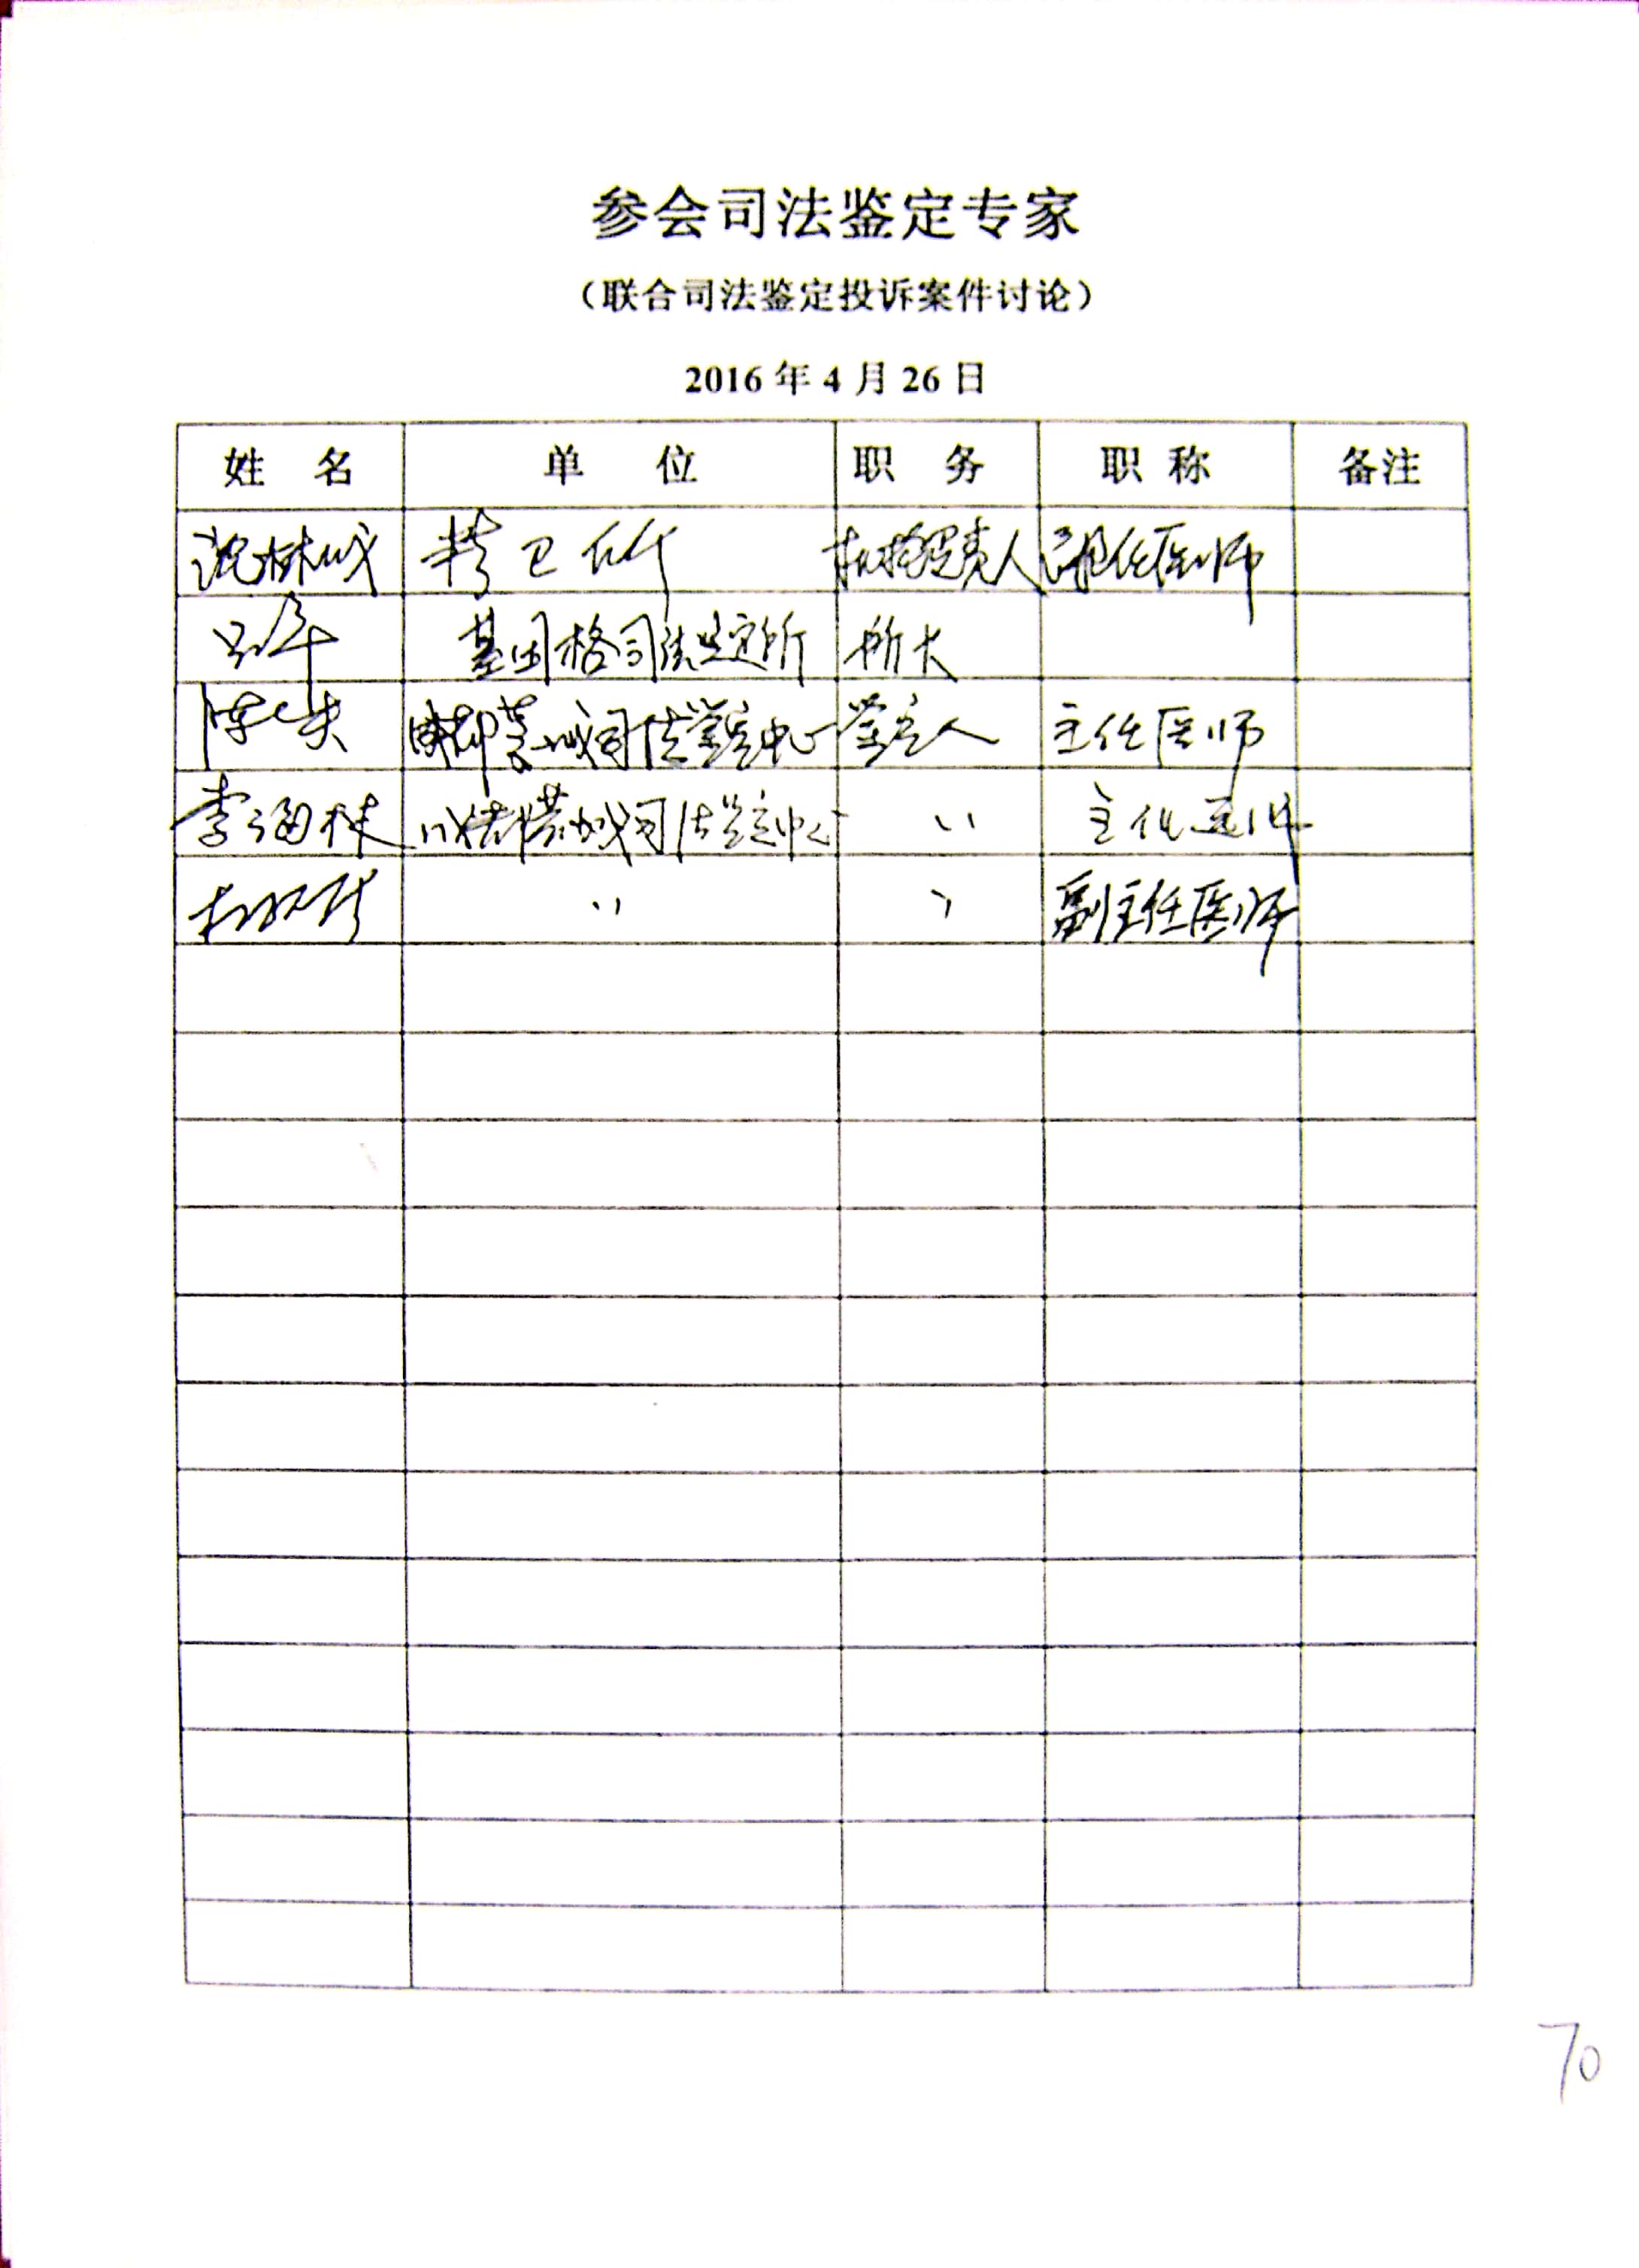 参会司法鉴定专家
（联合司法鉴定投诉案件讨论）
2016年4月26日
姓 名 单 位 职 务 职 称 备注
精卫所 机构负责人 副主任医师
基因格司法鉴定所 所长
成都 司法鉴定中心 鉴定人 主任医师
李 成都 司法鉴定中心 〃 主任医师
〃 〃 副主任医师
70